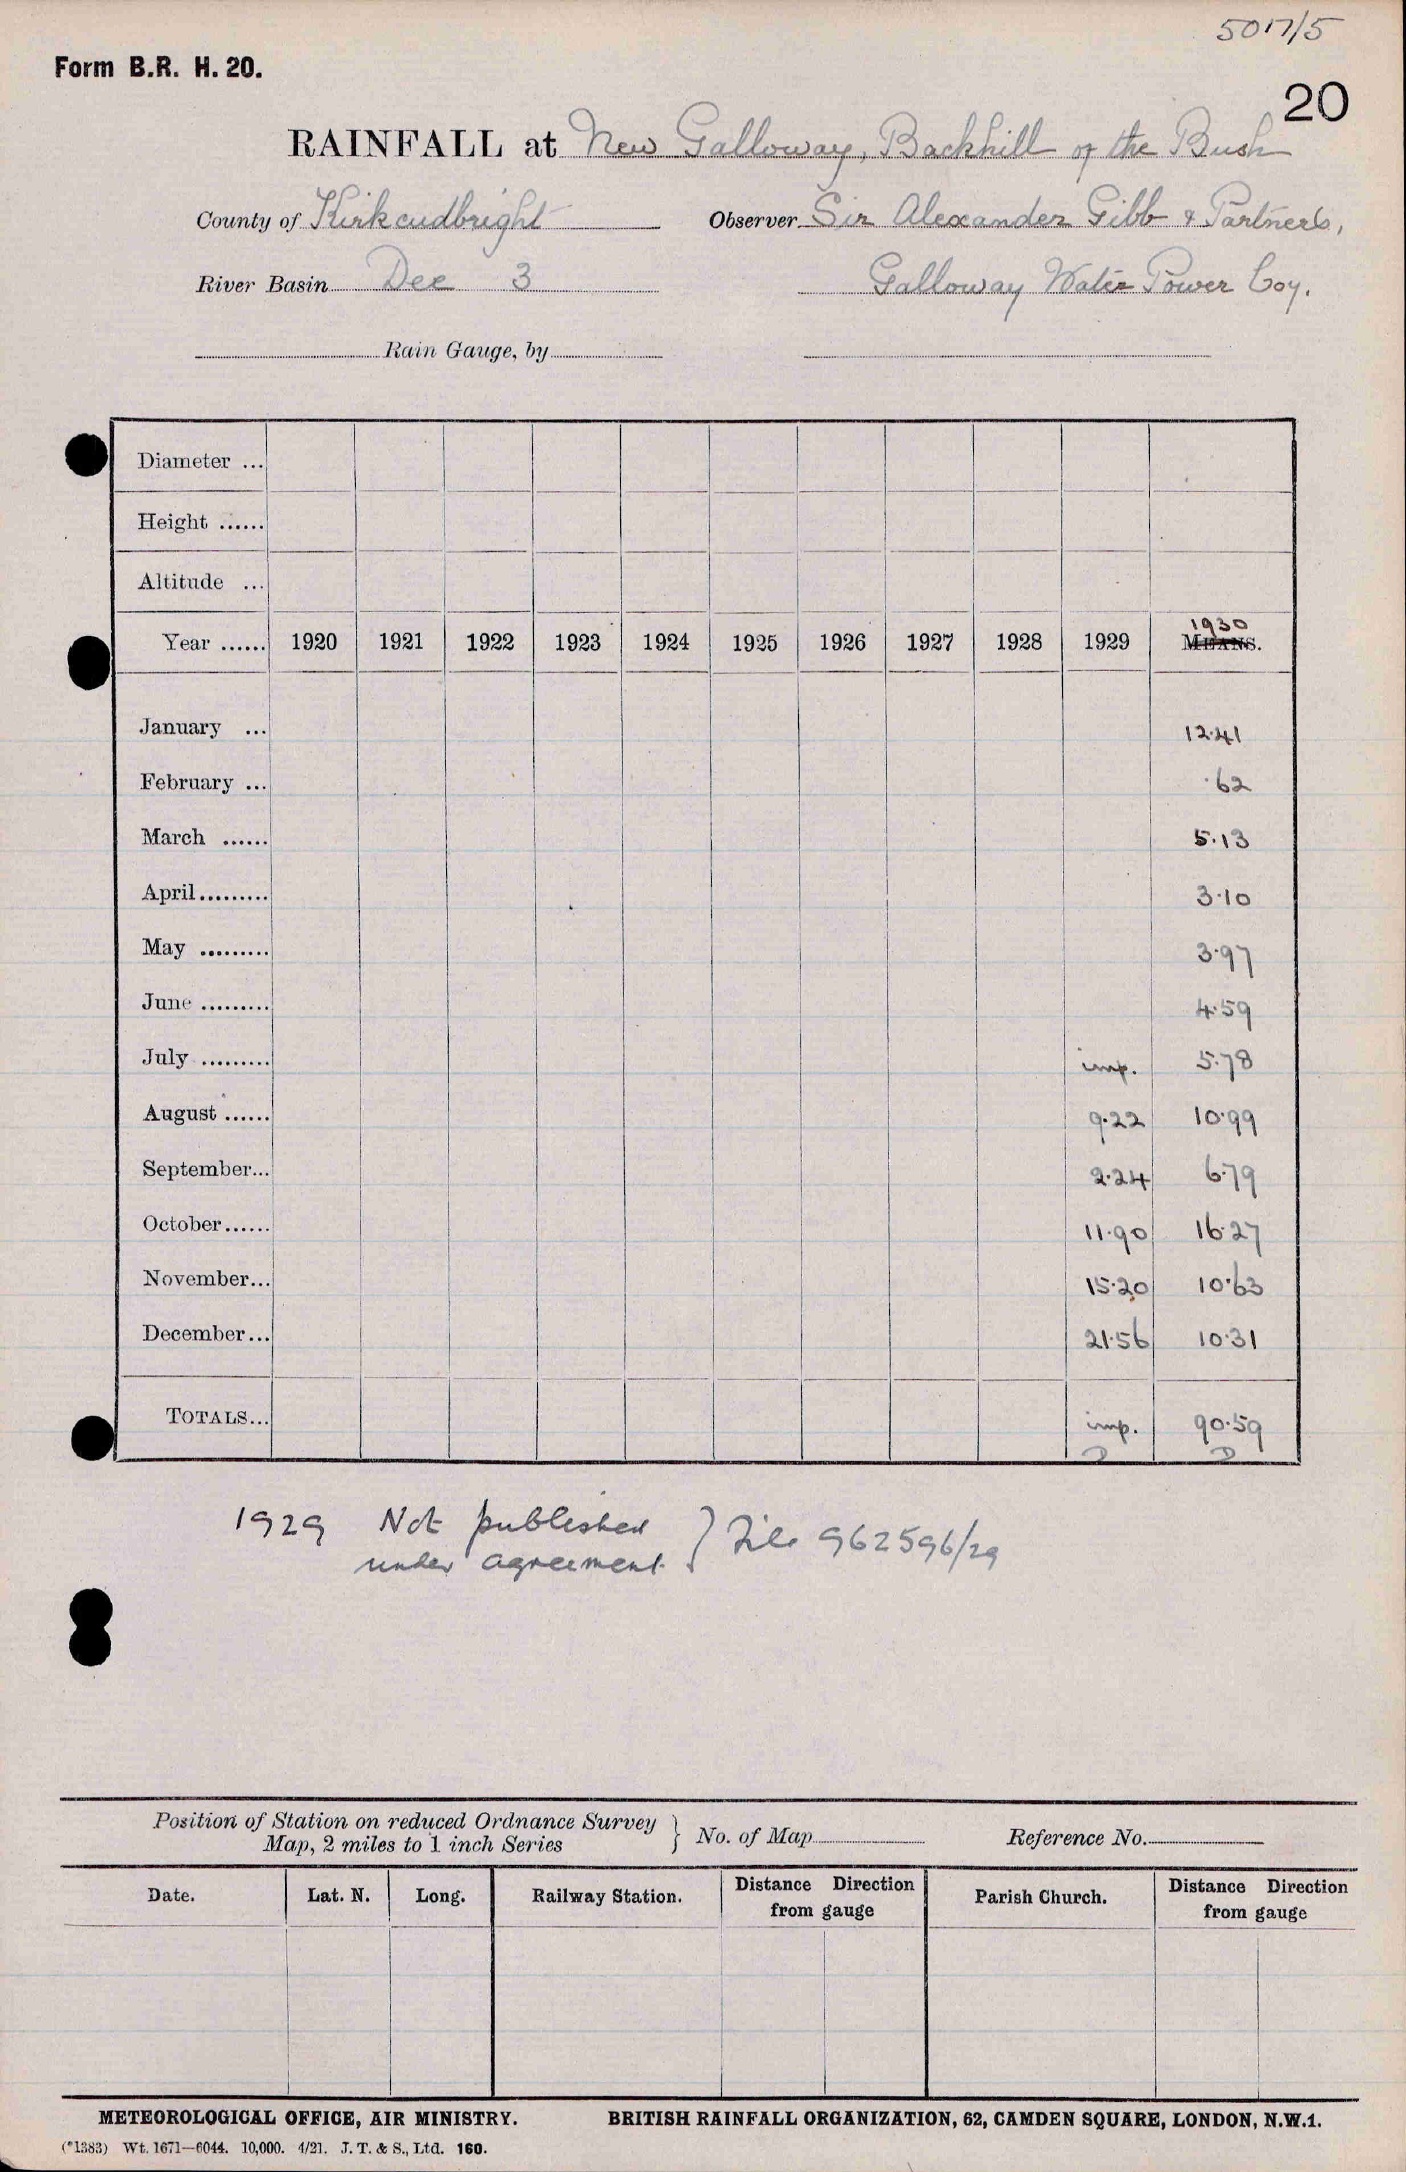 5017/5
Form B.R. H. 20.
20
RAINFALL at New Galloway, Backhill of the Bush
County of Kirkcudbright Observer Sir Alexander Gibb & Partners,
River Basin Dee 3 Galloway Water Power Coy.
Rain Gauge, by
Diameter ...
Height ......
Altitude ...
Year ...... 1920 1921 1922 1923 1924 1925 1926 1927 1928 1929 1930 MEANS.
January ... 12.41
February ... .62
March ...... 5.13
April ......... 3.10
May ......... 3.97
June ......... 4.59
July ......... imp. 5.78
August ...... 9.22 10.99
September... 2.24 6.79
October...... 11.90 16.27
November... 15.20 10.63
December... 21.56 10.31
TOTALS... imp. 90.59
1929 Not published } File 962596/29
under agreement
Position of Station on reduced Ordnance Survey
Map, 2 miles to 1 inch Series } No. of Map Reference No.
Date. Lat. N. Long. Railway Station. Distance Direction from gauge Parish Church. Distance Direction from gauge
METEOROLOGICAL OFFICE, AIR MINISTRY. BRITISH RAINFALL ORGANIZATION, 62, CAMDEN SQUARE, LONDON, N.W.1.
(*1383) Wt. 1671—6044. 10,000. 4/21. J. T. & S., Ltd. 160.